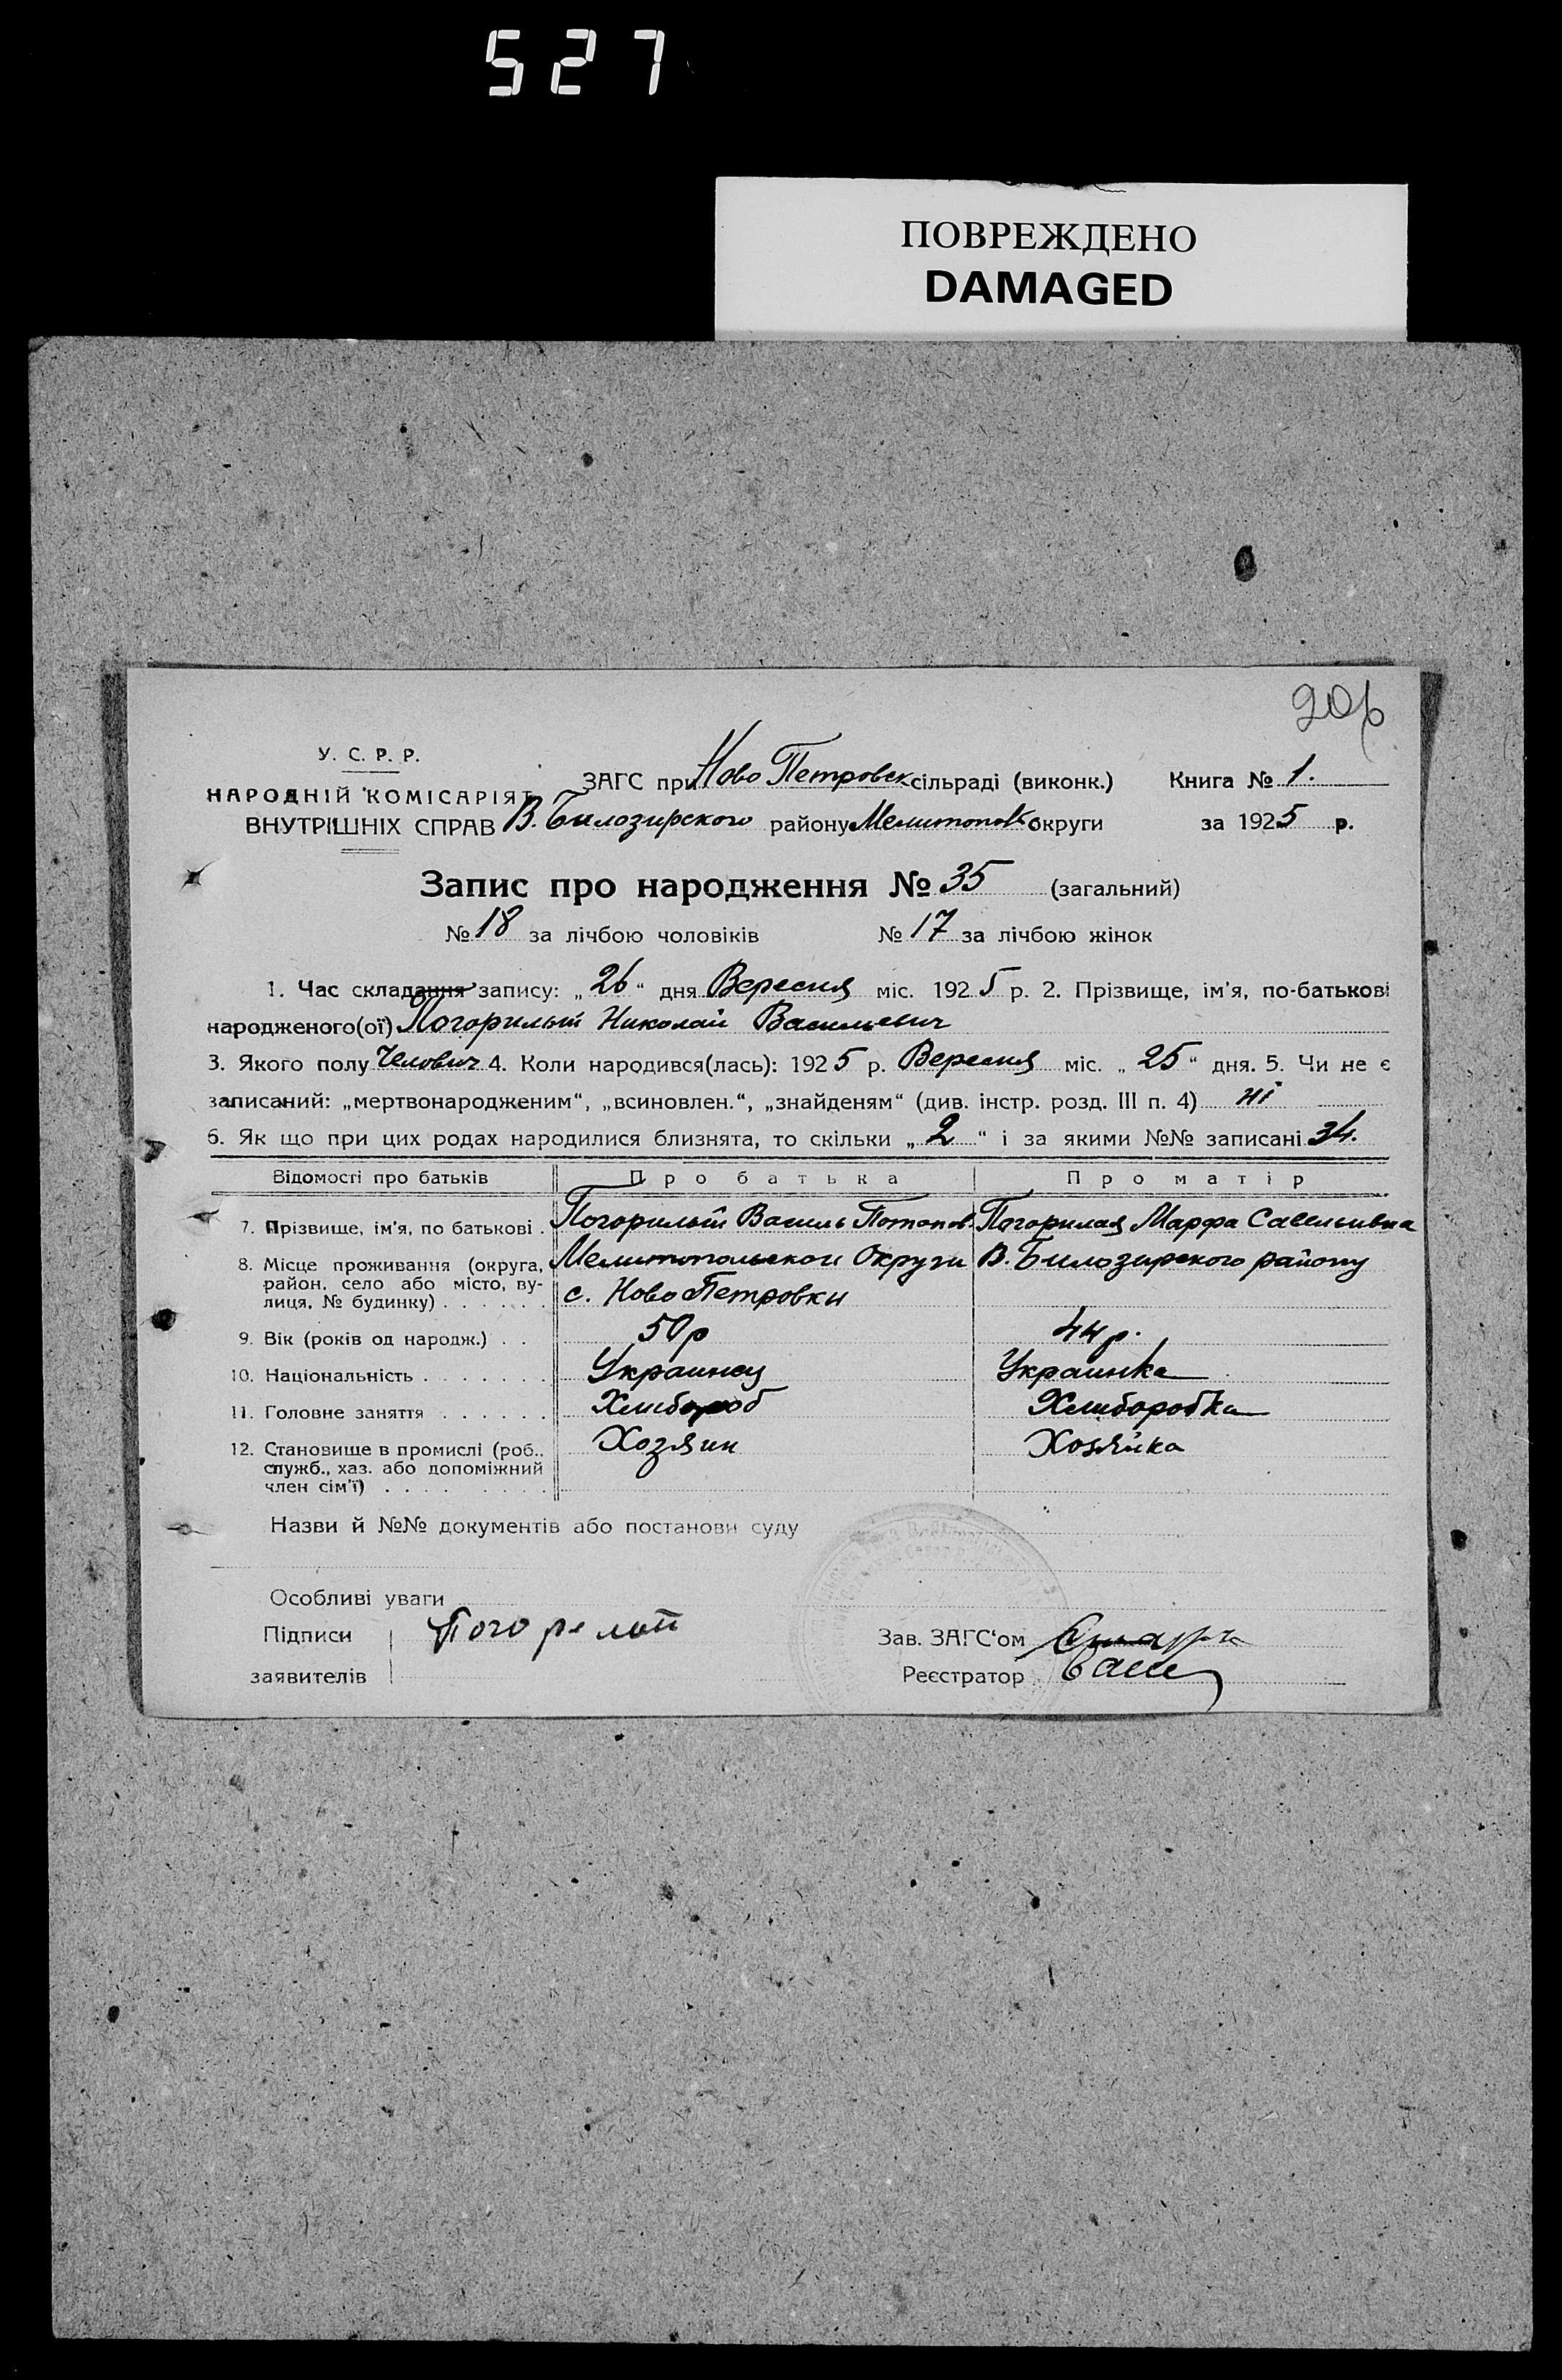 527
ПОВРЕЖДЕНО
DAMAGED
206
У. С. Р. Р.
НАРОДНІЙ КОМІСАРІЯТ
ВНУТРІШНІХ СПРАВ
ЗАГС при Ново Петровск сільраді (виконк.) Книга № 1.
В. Билозирского району Мелитопольск округи за 1925 р.
Запис про народження № 35 (загальний)
№ 18 за лічбою чоловіків № 17 за лічбою жінок
1. Час складання запису: „26“ дня Вересня міс. 1925 р. 2. Прізвище, ім'я, по-батькові
народженого(ої) Погорилый Николай Васильевич
3. Якого полу Челович 4. Коли народився(лась): 1925 р. Вересня міс. „25“ дня. 5. Чи не є
записаний: „мертвонародженим“, „всиновлен.“, „знайденям“ (див. інстр. розд. III п. 4) ні
6. Як що при цих родах народилися близнята, то скільки „2“ і за якими №№ записані 34.
Відомості про батьків Про батька Про матір
7. Прізвище, ім'я, по батькові . Погорилый Василь Потапов. Погорилая Марфа Савельивна
8. Місце проживання (округа, Мелитопольскои Округи В. Билозирского району
район, село або місто, ву-
лиця, № будинку) . . . . . . с. Ново Петровки
9. Вік (років од народж.) . . 50р 44р.
10. Національність . . . . . . . Украинец Украинка
11. Головне заняття . . . . . . Хлибороб Хлиборобка
12. Становище в промислі (роб., Хозяин Хозяйка
служб., хаз. або допоміжний
член сім'ї) . . . . . . . .
Назви й №№ документів або постанови суду
Особливі уваги
Підписи Погорелой
заявителів
Зав. ЗАГС'ом
Реєстратор